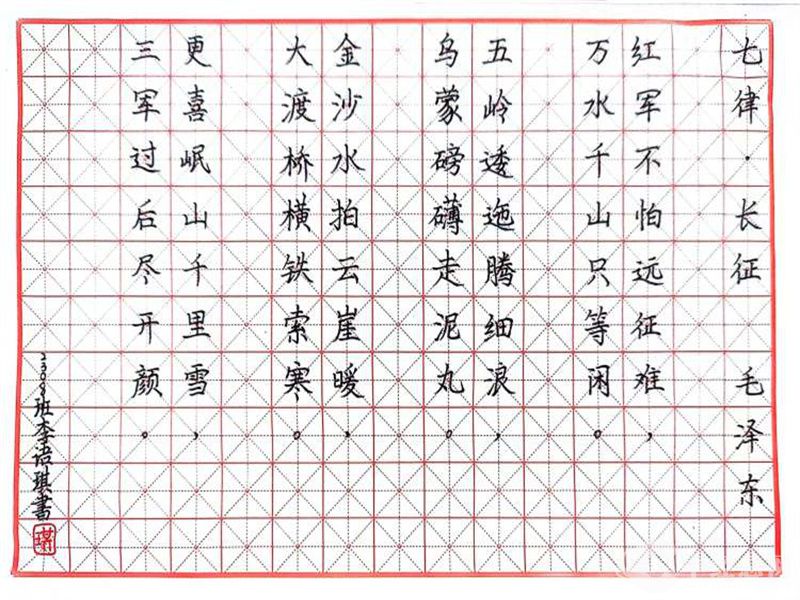 七律·长征 毛泽东
红军不怕远征难，
万水千山只等闲。
五岭逶迤腾细浪，
乌蒙磅礴走泥丸。
金沙水拍云崖暖，
大渡桥横铁索寒。
更喜岷山千里雪，
三军过后尽开颜。
2309班李语琪書
琪